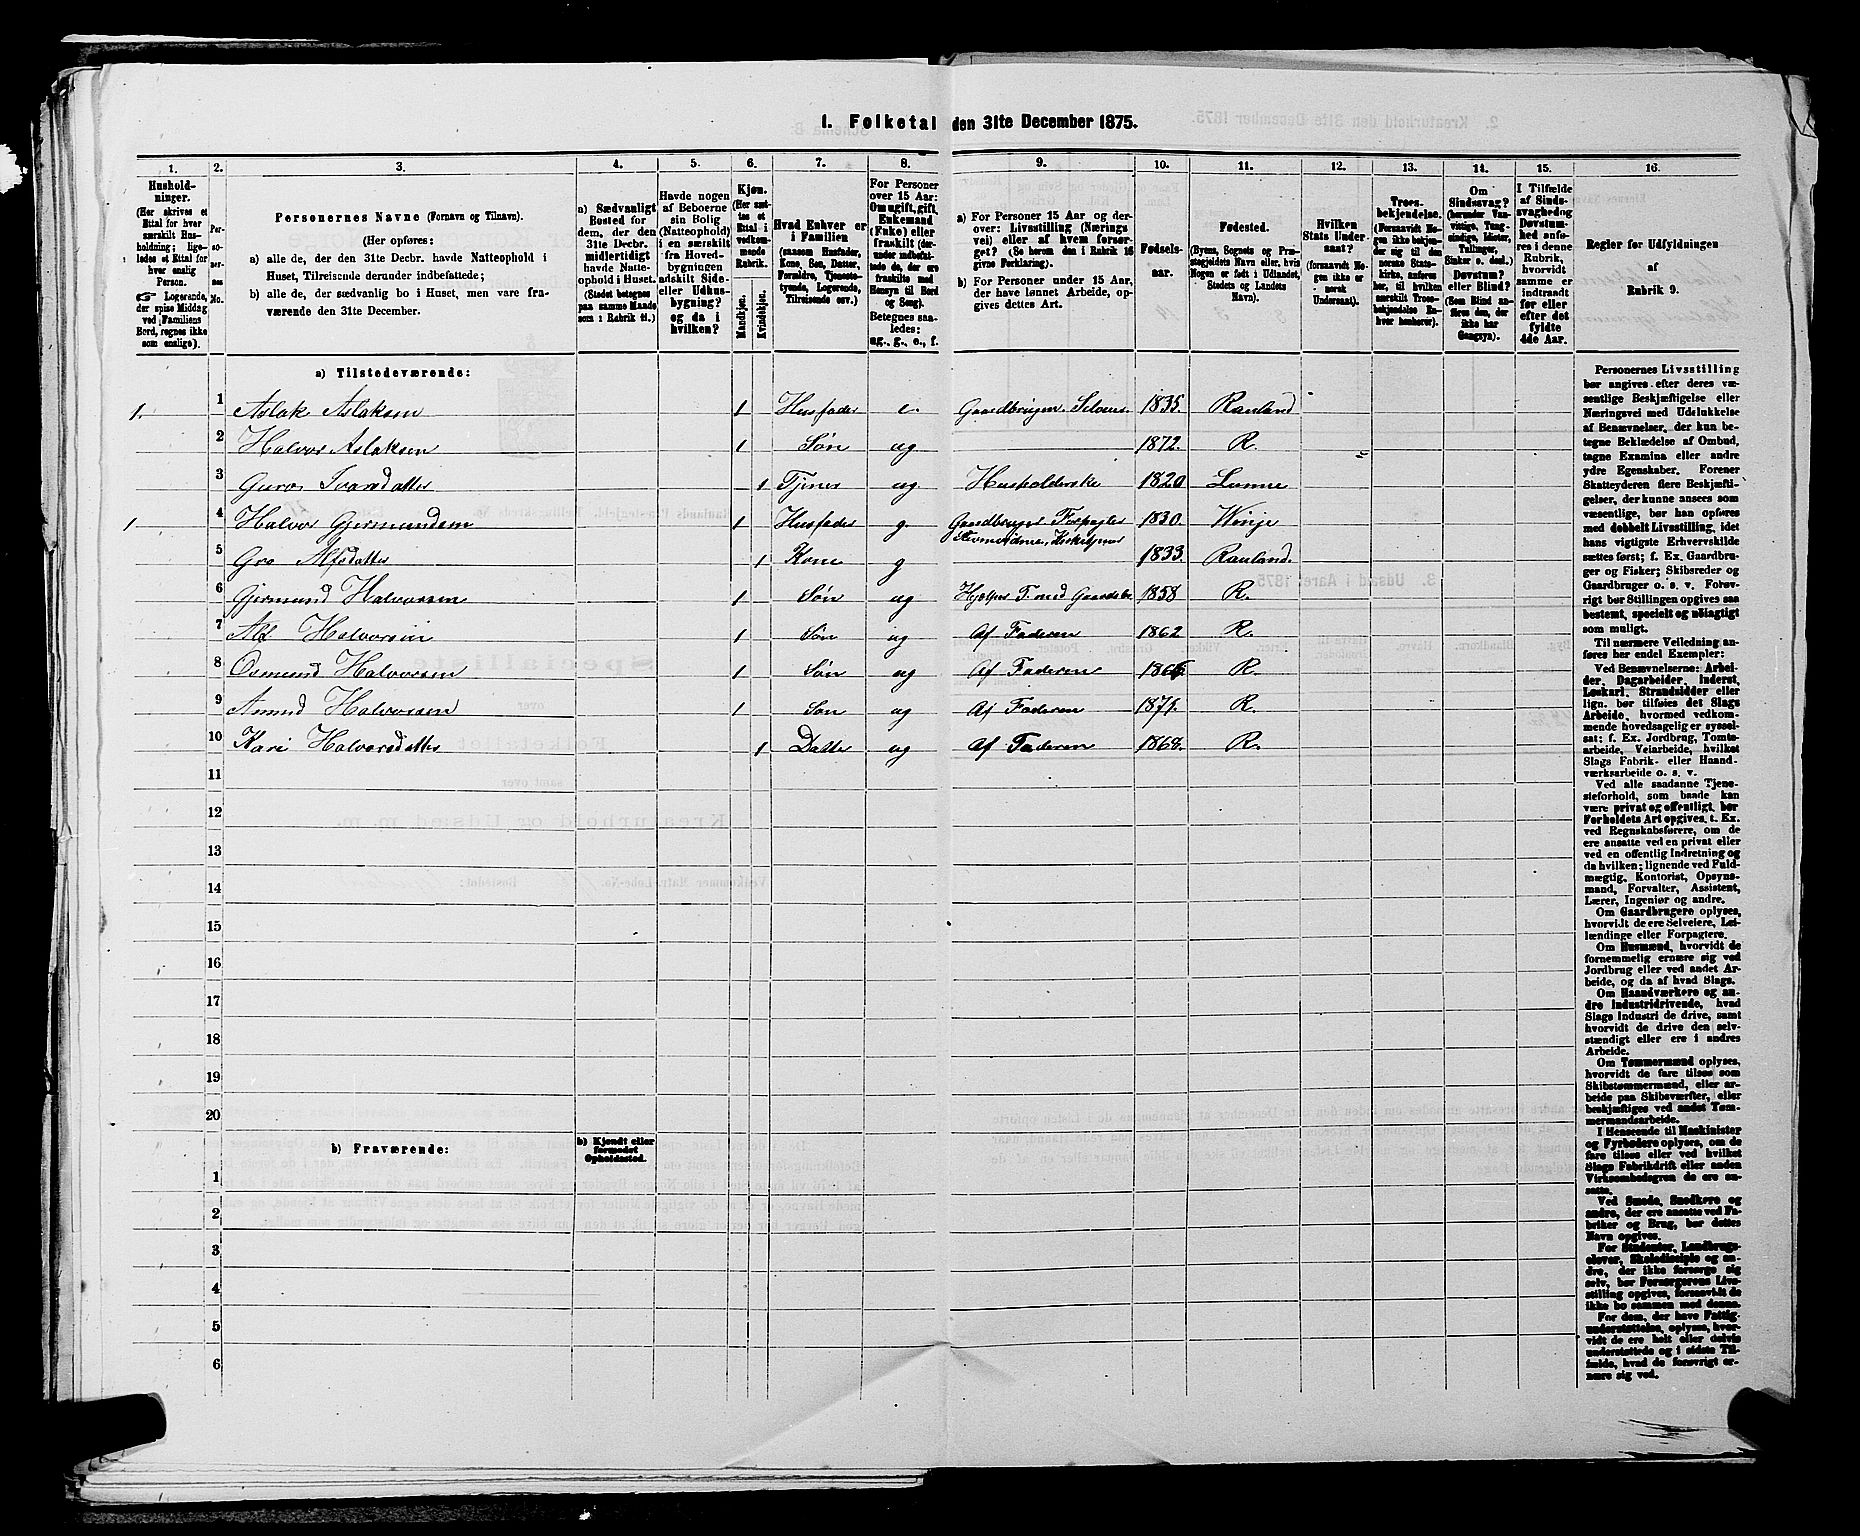 1. Folketal den 31te December 1875.
1. 2. 3. 4. 5. 6. 7. 8. 9. 10. 11. 12. 13. 14. 15. 16.
Hushold-
ninger.
(Her skrives et
Ettal for hver
særskilt Hus-
holdning; lige-
ledes et Ettal for
hver enslig
Person.
☞ Logerende,
der spise Middag
ved Familiens
Bord, regnes ikke
som enslige).
Per-
so-
ner-
nes
No.
Personernes Navne (Fornavn og Tilnavn).
(Her opføres:
a) alle de, der den 31te Decbr. havde Natteophold i
Huset, Tilreisende derunder indbefattede;
b) alle de, der sædvanlig bo i Huset, men vare fra-
værende den 31te December.
a) Sædvanligt
Bosted for
dem, der den
31te Decbr.
midlertidigt
havde Natte-
ophold i Huset.
(Stedet betegnes
paa samme Maade
som i Rubrik 11.)
Havde nogen
af Beboerne
sin Bolig
(Natteophold)
i en særskilt
fra Hoved-
bygningen
adskilt Side-
eller Udhus-
bygning?
og da i
hvilken?
Kjøn.
(Her sæt-
tes et
Ettal i
vedkom-
mende
Rubrik.
Mandkjøn.
Kvindekjøn.
Hvad Enhver er
i Familien
(saasom Husfader,
Kone, Søn, Datter,
Forældre, Tjeneste-
tyende, Logerende,
Tilreisende osv.)
For Personer
over 15 Aar:
Om ugift, gift,
Enkemand
(Enke) eller
fraskilt (der-
under indbefat-
tede de, der ere
fraskilte med
Hensyn til Bord
og Seng).
Betegnes saa-
ledes:
ug., g., e., f.
a) For Personer 15 Aar og der-
over: Livsstilling (Nærings-
vei) eller af hvem forsør-
get? (Se herom den i Rubrik 16
givne Forklaring).
b) For Personer under 15 Aar,
der have lønnet Arbeide, op-
gives dettes Art.
Fødsels-
aar.
Fødested.
(Byens, Sognets og Præ-
stegjeldets Navn eller, hvis
Nogen er født i Udlandet,
Stedets og Landets
Navn).
Hvilken
Stats Under-
saat?
(forsaavidt No-
gen ikke er
norsk
Undersaat).
Troes-
bekjendelse.
(Forsaavidt No-
gen ikke bekjen-
der sig til den
norske Stats-
kirke, anføres
her, til hvilken
særskilt Troes-
bekjendelse En-
hver henhører).
Om
Sindssvag?
(herunder Van-
vittige, Tung-
sindige, Idioter,
Tullinger,
Sinker o. desl.)
Døvstum?
eller Blind?
(Som Blind an-
føres den, der
ikke har
Gangsyn).
I Tilfælde
af Sinds-
svaghed og
Døvstum-
hed anfø-
res i denne
Rubrik,
hvorvidt
samme er
indtraadt
før eller
efter det
fyldte
4de Aar.
Regler for Udfyldningen
af
Rubrik 9.
a) Tilstedeværende:
1. 1 Aslak Aslaksen 1 Husfader e. Gaardbruger. Selveier. 1835. Rauland
2 Halvor Aslaksen 1 Søn ug 1872. R.
3 Guro Ivarsdatter 1 Tjener ug Husholderske 1820 Lunne
1 4 Halvor Gjermundsen 1 Husfader g. Gaardbruger Forpagter 1830. Winje
5 Gro Alfsdatter 1 Kone g 1833 Rauland.
6 Gjermund Halvorsen 1 Søn ug Hjelper F. med Gaardsbr. 1858 R.
7 Alf Halvorsen 1 Søn ug Af Faderen 1862 R.
8 Osmund Halvorsen 1 Søn ug Af Faderen 1866. R.
9 Anund Halvorsen 1 Søn ug Af Faderen 1871. R.
10 Kari Halvorsdatter 1 Datter ug Af Faderen 1868. R.
11
12
13
14
15
16
17
18
19
20
b) Fraværende:
b) Kjendt eller
formodet
Opholdssted.
1
2
3
4
5
6
Personernes Livsstilling
bør angives efter deres væ-
sentlige Beskjæftigelse eller
Næringsvei med Udelukkelse
af Benævnelser, der kun be-
tegne Beklædelse af Ombud,
tagne Examina eller andre
ydre Egenskaber. Forener
Skatteyderen flere Beskjæfti-
gelser, der kunne ansees som
væsentlige, bør han opføres
med dobbelt Livsstilling, idet
hans vigtigste Erhvervskilde
sættes først; f. Ex. Gaardbru-
ger og Fisker; Skibsreder og
Gaardbruger o. s. v. Forøv-
rigt bør Stillingen opgives saa
bestemt, specielt og nøiagtigt
som muligt.
Til nærmere Veiledning an-
føres her endel Exempler:
Ved Benævnelserne: Arbei-
der, Dagarbeider, Inderst,
Løskarl, Strandsidder eller
lign. bør tilføies det Slags
Arbeide, hvormed vedkom-
mende hovedsagelig er syssel-
sat; f. Ex. Jordbrug, Tomte-
arbeide, Veiarbeide, hvilket
Slags Fabrik- eller Haand-
værksarbeide o. s. v.
Ved alle saadanne Tjene-
steforhold, som baade kan
være privat og offentligt, bør
Forholdets Art opgives, t. Ex.
ved Regnskabsførere, om de
ere ansatte ved en privat eller
ved en offentlig Indretning og
da hvilken; lignende ved Fuld-
mægtig, Kontorist, Opsyns-
mand, Forvalter, Assistent,
Lærer, Ingeniør og andre.
Om Gaardbrugere oplyses,
hvorvidt de ere Selveiere, Lei-
lændinge eller Forpagtere.
Om Husmænd, hvorvidt de
fornemmelig ernære sig ved
Jordbrug eller ved andet Ar-
beide, og da af hvad Slags.
Om Haandværkere og an-
dre Industridrivende, hvad
Slags Industri de drive, samt
hvorvidt de drive den selv-
stændigt eller ere i andres
Arbeide.
Om Tømmermænd oplyses,
hvorvidt de fare tilsøs som
Skibstømmermænd, eller ar-
beide paa Skibsværfter, eller
beskjæftiges ved andet Tøm-
mermandsarbeide.
I Henseende til Maskinister
og Fyrbødere oplyses, om de
fare tilsøs eller ved hvilket
Slags Fabrikdrift eller anden
Virksomhedsgren de ere an-
satte.
Ved Smede, Snedkere og
andre, der ere ansatte ved Fa-
briker og Brug, bør dettes
Navn opgives.
For Studenter, Landbrugs-
elever, Skoledisciple og an-
dre, der ikke forsørge sig
selv, bør Forsørgerens Livs-
stilling opgives, forsaavidt de
ikke bo sammen med denne.
For dem, der have Fattig-
understøttelse, oplyses, hvor-
vidt de ere helt eller delvis
understøttede og i sidste Til-
fælde, hvad de forøvrigt er-
nære sig ved.